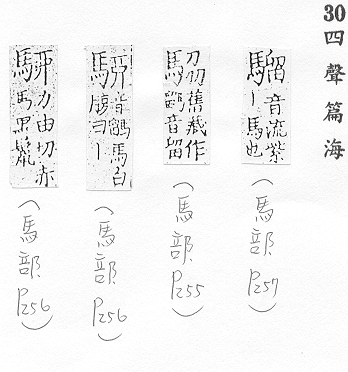 30 四聲篇海
騮 音流紫丨馬也
(馬部 P257)
舊藏作
音留
(馬部 P255)
馬白
曰丨
(馬部 P256)
力由切赤
馬黑鬣
(馬部 P256)